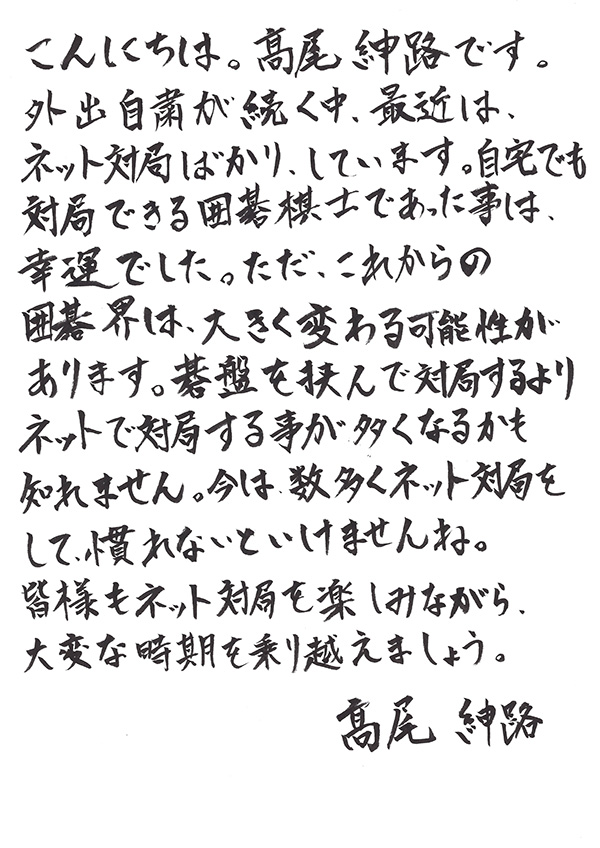 こんにちは。髙尾紳路です。
外出自粛が続く中、最近は、
ネット対局ばかり、しています。自宅でも
対局できる囲碁棋士であった事は、
幸運でした。ただ、これからの
囲碁界は、大きく変わる可能性が
あります。碁盤を挟んで対局するより
ネットで対局する事が多くなるかも
知れません。今は数多くネット対局を
して、慣れないといけませんね。
皆様もネット対局を楽しみながら、
大変な時期を乗り越えましょう。
髙尾 紳路